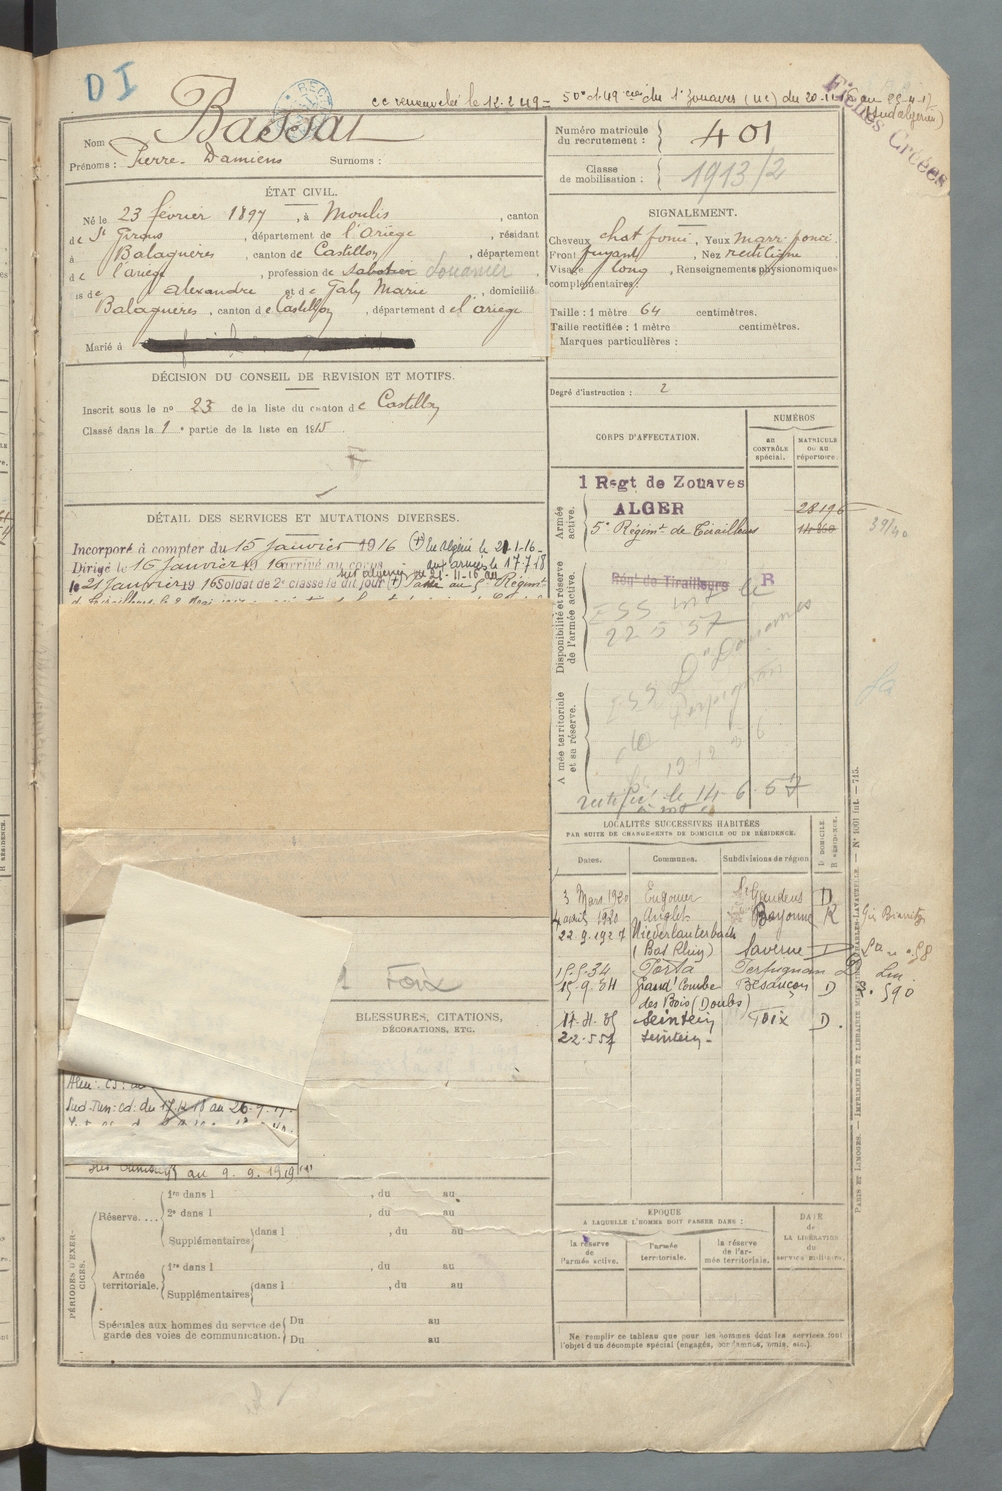 DI
cc renouvelée le 12.2.49 = 50e et 49 cie du 1er Zouaves (UC) du 20-11-16 au 25-4-17
(Sud algérien)
Fiches Créées
Nom Bassat
Prénoms : Pierre-Damiens Surnoms :
Numéro matricule du recrutement : 401
Classe de mobilisation : 1913/2
ÉTAT CIVIL.
Né le 23 février 1897, à Moulis, canton
de St Girons, département de l'Ariège, résidant
à Balaguères, canton de Castillon, département
de l'ariège, profession de sabotier Douanier
fils de Alexandre et de Galy Marie, domiciliés
Balaguères, canton de Castillon, département de l'ariège
Marié à
SIGNALEMENT.
Cheveux chat foncé, Yeux marr. foncé
Front fuyant, Nez rectiligne
Visage long, Renseignements physionomiques
complémentaires:
Taille : 1 mètre 64 centimètres.
Taille rectifiée : 1 mètre centimètres.
Marques particulières :
Degré d'instruction : 2
DÉCISION DU CONSEIL DE REVISION ET MOTIFS.
Inscrit sous le no 23 de la liste du canton de Castillon
Classé dans la 1e partie de la liste en 1915
DÉTAIL DES SERVICES ET MUTATIONS DIVERSES.
Incorporé à compter du 15 Janvier 1916 (+) En Algérie le 21-1-16-
Dirigé le 16 Janvier 1916 arrivé au corps aux armées le 17 7 18
le 21 Janvier 1916 Soldat de 2e classe le dit jour (+) Passé au 5e Régimt
CORPS D'AFFECTATION.
NUMÉROS
au CONTRÔLE spécial.
MATRICULE ou au répertoire.
Armée active.
1 Regt de Zouaves
ALGER
28196
5e Régimt de Tirailleurs
Disponibilité et réserve de l'armée active.
Régt de Tirailleurs
R
22 5 57
Dn Douanes
Armée territoriale et sa réserve.
Perpignan
rectifié le 14-6-57
LOCALITÉS SUCCESSIVES HABITÉES
PAR SUITE DE CHANGEMENTS DE DOMICILE OU DE RÉSIDENCE.
Dates. Communes. Subdivisions de région D DOMICILE. R RÉSIDENCE.
3 Mars 1920 Engomer St Gaudens D
4 avril 1920 Anglet Bayonne R
22.9.1927 Niederlauterbach
(Bas Rhin) Saverne D
15-5-34 Porta Perpignan D
15-9-34 Grand'Combe Besançon D
des Bois (Doubs)
Seintein Foix D.
22-5 57 Sentein-
1 Foix
BLESSURES, CITATIONS,
DÉCORATIONS, ETC.
Sud.Tun: cd: du 17 12 18 au
au 9.9.1919
PÉRIODES D'EXERCICES.
Réserve....
1re dans l , du au
2e dans l , du au
Supplémentaires dans l , du au
Armée territoriale.
1re dans l , du au
Supplémentaires dans l , du au
Spéciales aux hommes du service de
garde des voies de communication.
Du au
Du au
EPOQUE
A LAQUELLE L'HOMME DOIT PASSER DANS :
la réserve de l'armée active.
l'armée territoriale.
la réserve de l'armée territoriale.
DATE de LA LIBÉRATION du service militaire.
Ne remplir ce tableau que pour les hommes dont les services font
l'objet d'un décompte spécial (engagés, condamnés, omis, etc.).
PARIS ET LIMOGES. — IMPRIMERIE ET LIBRAIRIE MILITAIRES CHARLES-LAVAUZELLE. — No 1001 Int. — 715.